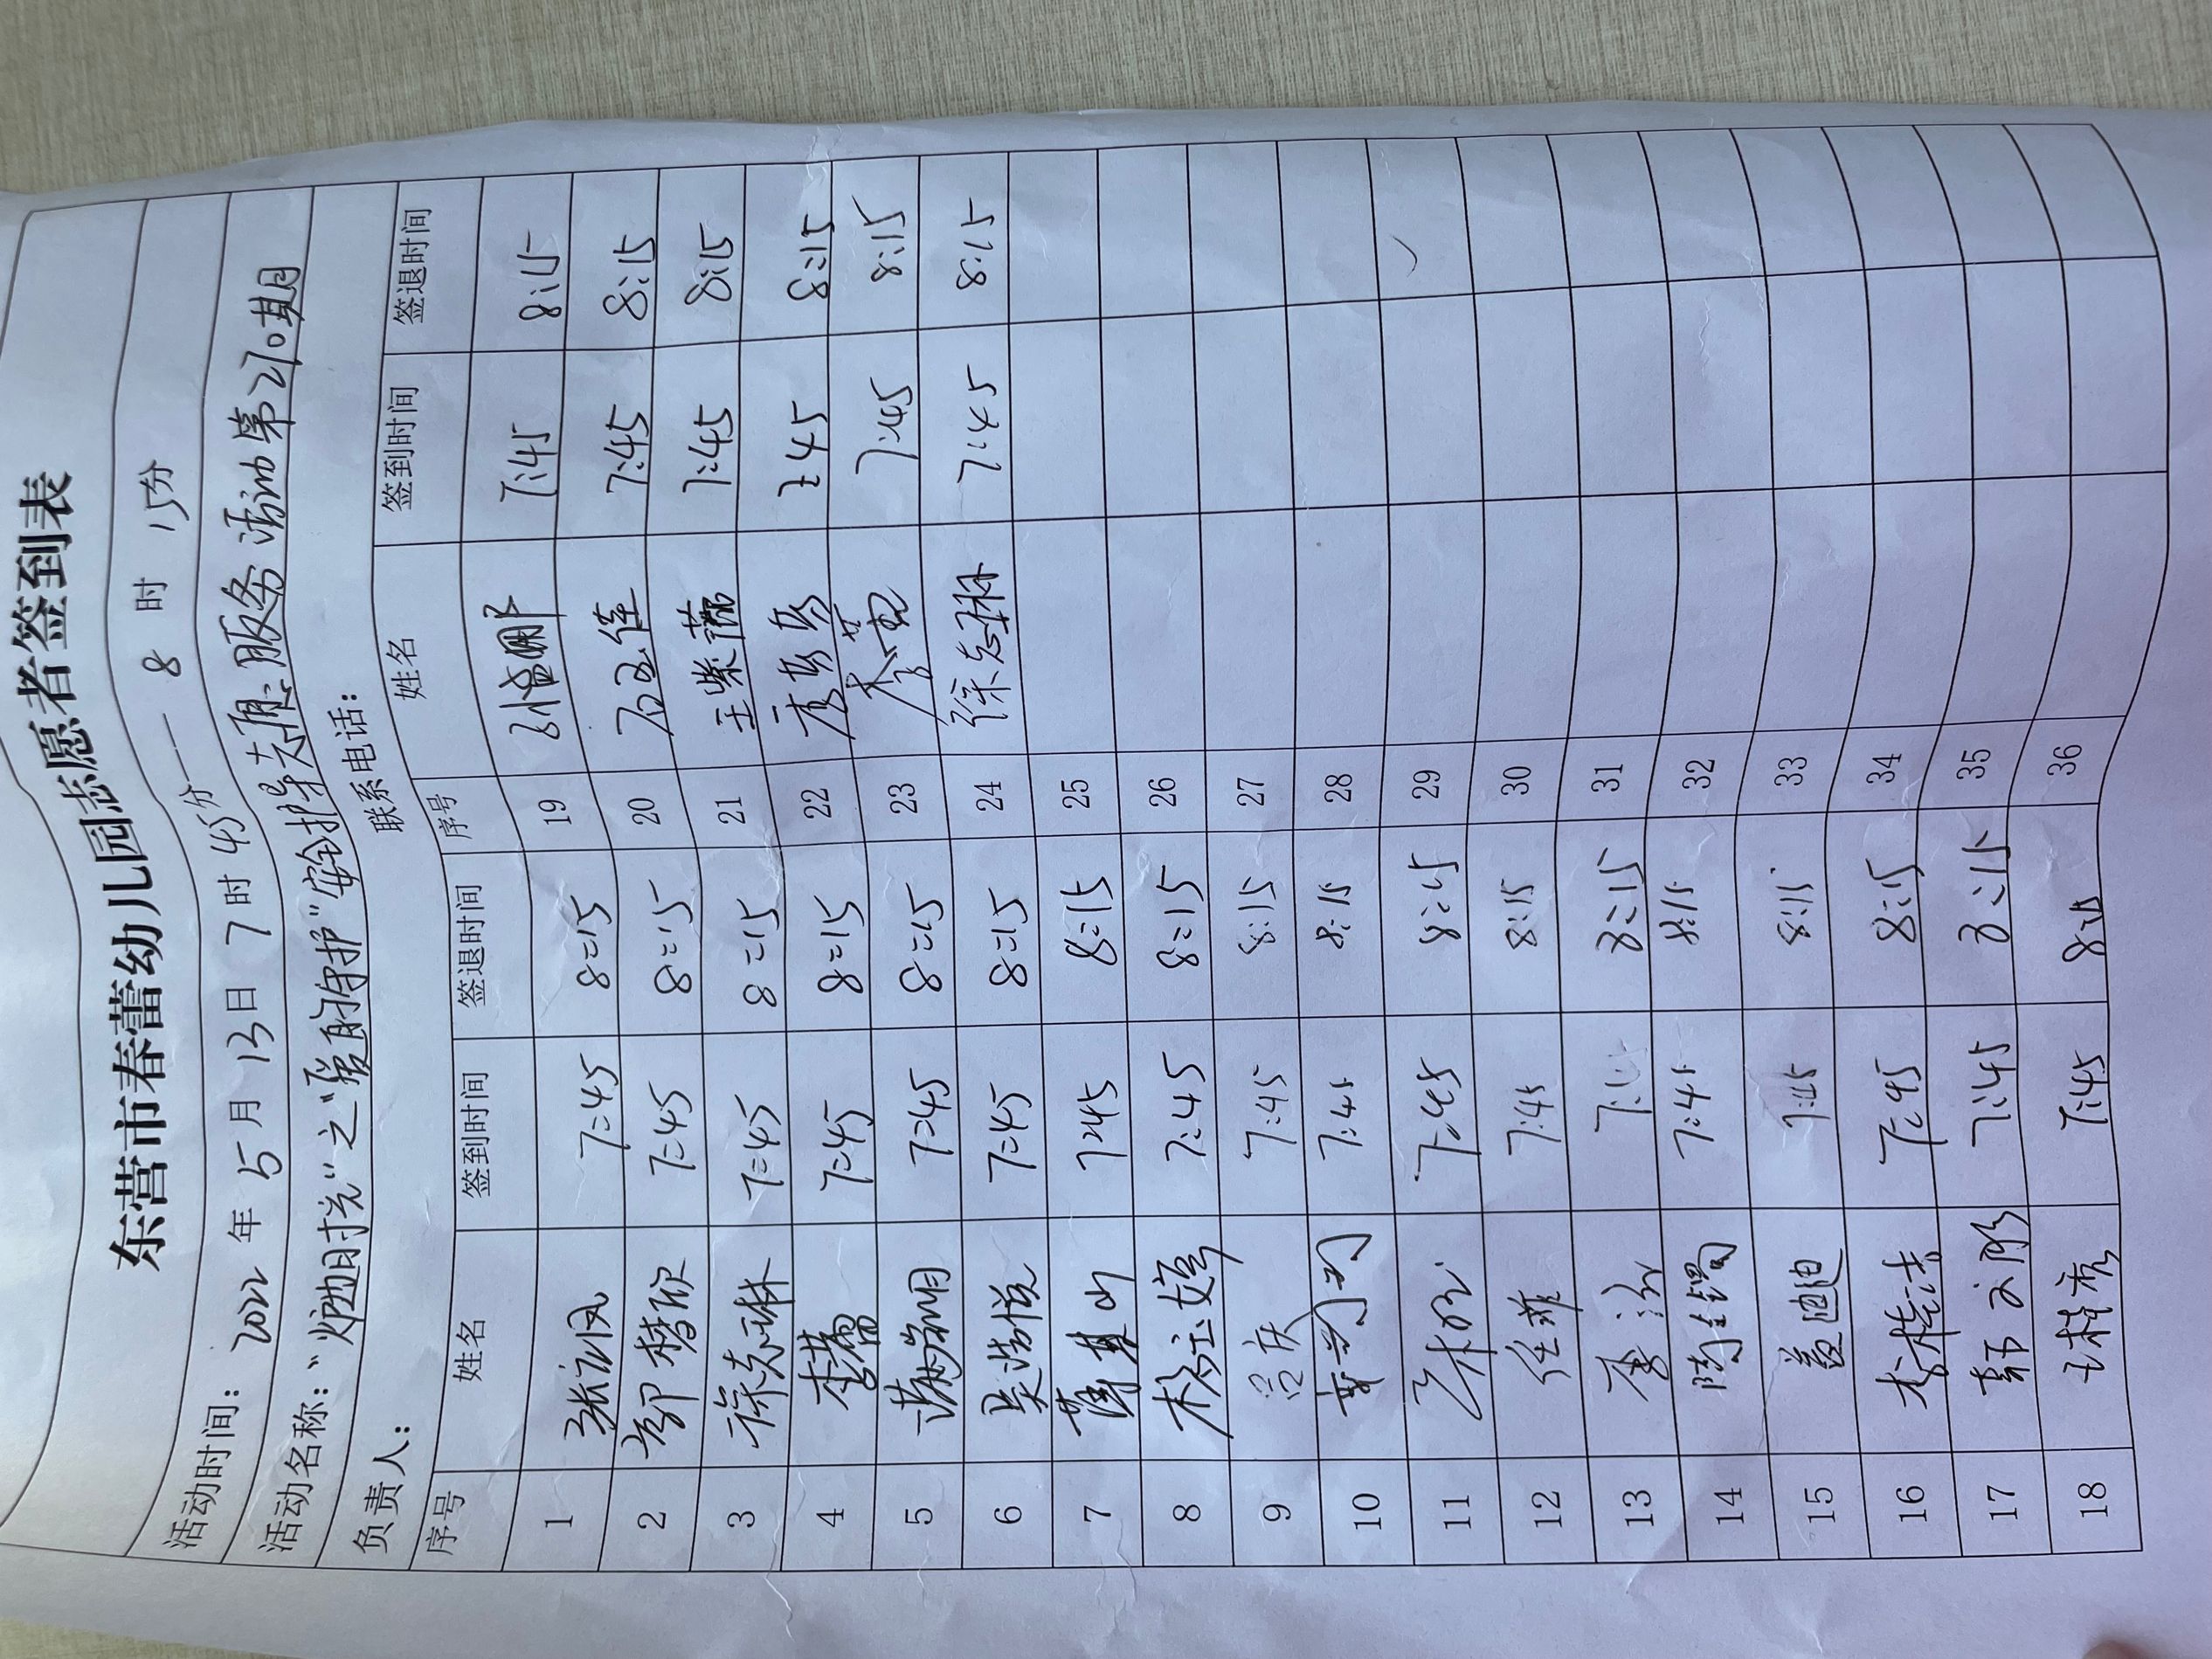 东营市春蕾幼儿园志愿者签到表
活动时间： 2022 年 5 月 13 日 7 时 45 分—— 8 时 15 分
活动名称："灿烂时光"之"爱的守护"安全护学志愿服务活动第210期
负责人： 联系电话：
序号 姓名 签到时间 签退时间 序号 姓名 签到时间 签退时间
1 7:45 8:15 19 7:45 8:15
2 郭梦欣 7:45 8:15 20 7:45 8:15
3 徐志琳 7:45 8:15 21 王紫薇 7:45 8:15
4 李蕾 7:45 8:15 22 7:45 8:15
5 7:45 8:15 23 7:45 8:15
6 吴浩悦 7:45 8:15 24 徐志琳 7:45 8:15
7 7:45 8:15 25
8 7:45 8:15 26
9 吕庆 7:45 8:15 27
10 7:45 8:15 28
11 7:45 8:15 29
12 任菲 7:45 8:15 30
13 8:15 31
14 7:45 8:15 32
15 盖迪 7:45 8:15 33
16 李桂洁 7:45 8:15 34
17 7:45 8:15 35
18 7:45 8:15 36